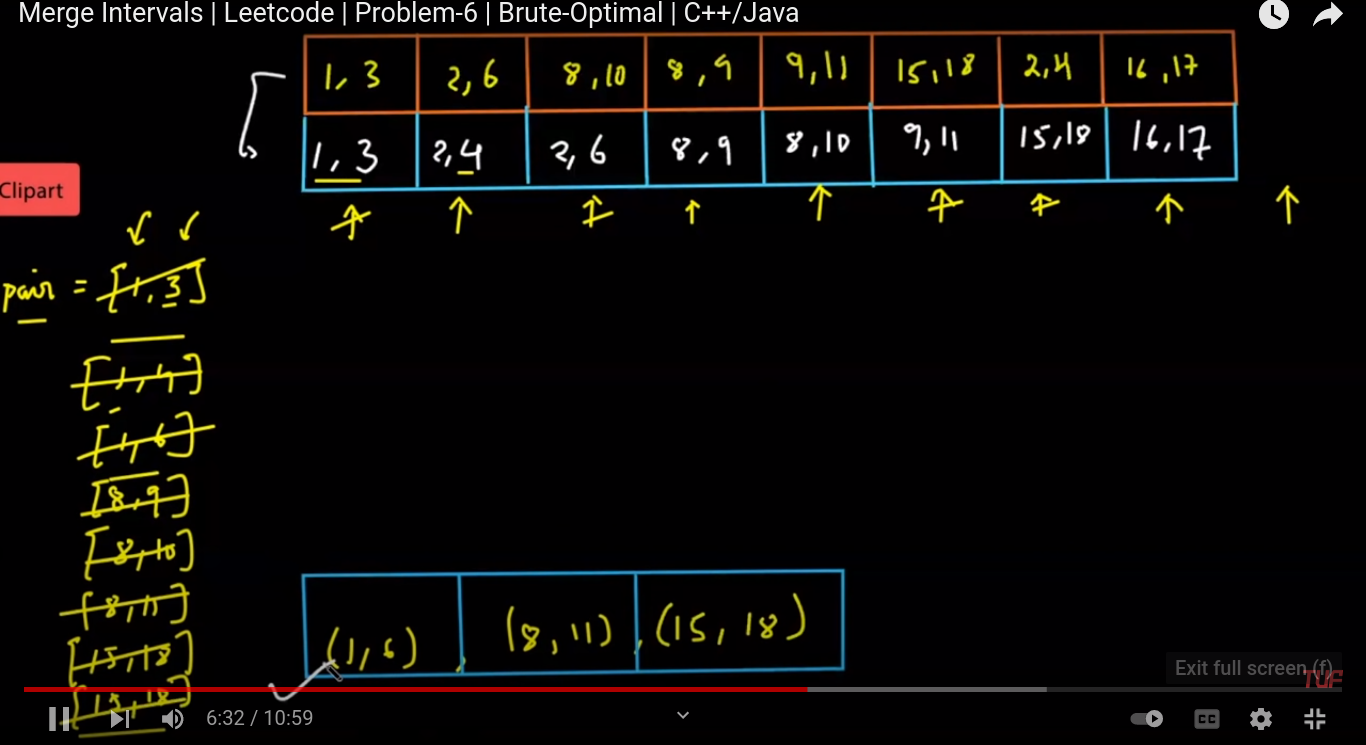 Merge Intervals | Leetcode | Problem-6 | Brute-Optimal | C++/Java
1, 3 2, 6 8, 10 8, 9 9, 11 15, 18 2, 4 16, 17
1, 3 2, 4 2, 6 8, 9 8, 10 9, 11 15, 18 16, 17
Clipart
pair = [1, 3]
[1, 4]
[1, 6]
[8, 9]
[8, 10]
[8, 11]
[15, 18]
[15, 18]
(1, 6) , (8, 11) , (15, 18)
Exit full screen (f)
TUF
6:32 / 10:59
CC